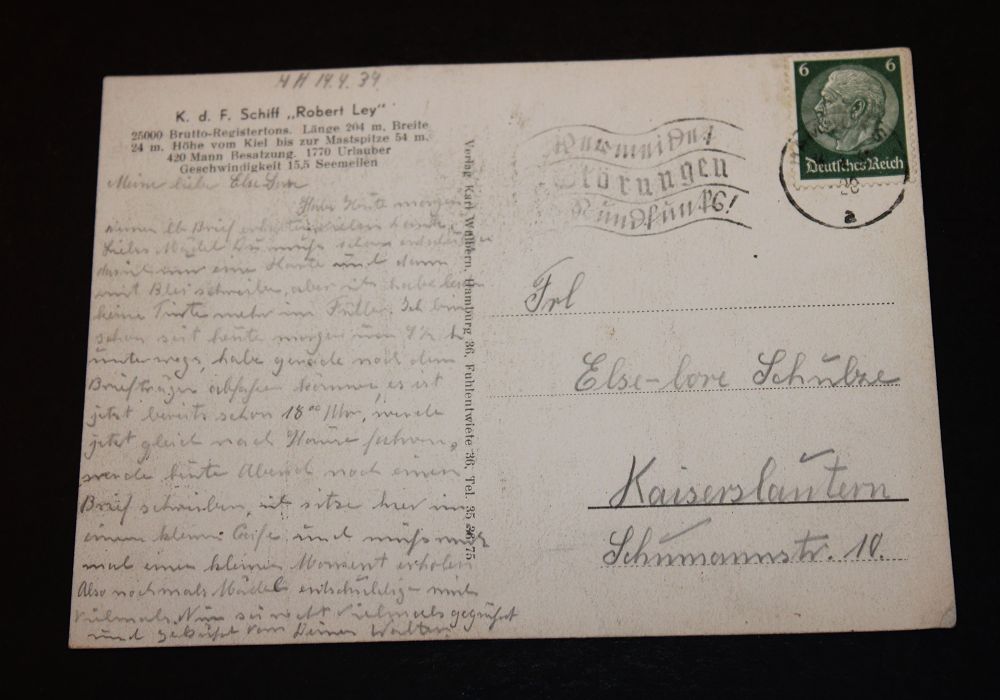 14.4.39
K. d. F. Schiff „Robert Ley"
25000 Brutto-Registertons. Länge 204 m, Breite
24 m. Höhe vom Kiel bis zur Mastspitze 54 m.
420 Mann Besatzung. 1770 Urlauber
Geschwindigkeit 15,5 Seemeilen
Meine liebe Else-Lore
Habe heute morgen
Brief
liebes Mädel Du mußt schon entschuldigen
eine Karte und dann
mit Blei schreibe, aber ich habe
keine Tinte mehr im Füller. Ich bin
schon seit heute morgen um
unterwegs, habe gerade noch dem
Briefträger abfassen können, es ist
jetzt bereits schon 18⁰⁰ Uhr, werde
jetzt gleich nach Hause fahren,
werde heute Abend noch einen
Brief schreiben, ich sitze hier in
einem kleinen Caffe und muß mich
mal einen kleinen Moment erholen
Also nochmals Mädel entschuldig mich
vielmals. Nun sei recht vielmals gegrüßt
und geküßt von Deinem Walter
Verlag Karl Wülbern, Hamburg 36, Fuhlentwiete 36, Tel. 35 36 75
Vermeidet
Störungen
Rundfunks!
6 6
Deutsches Reich
a
Frl
Else-lore Schulze
Kaiserslautern
Schumannstr. 10.